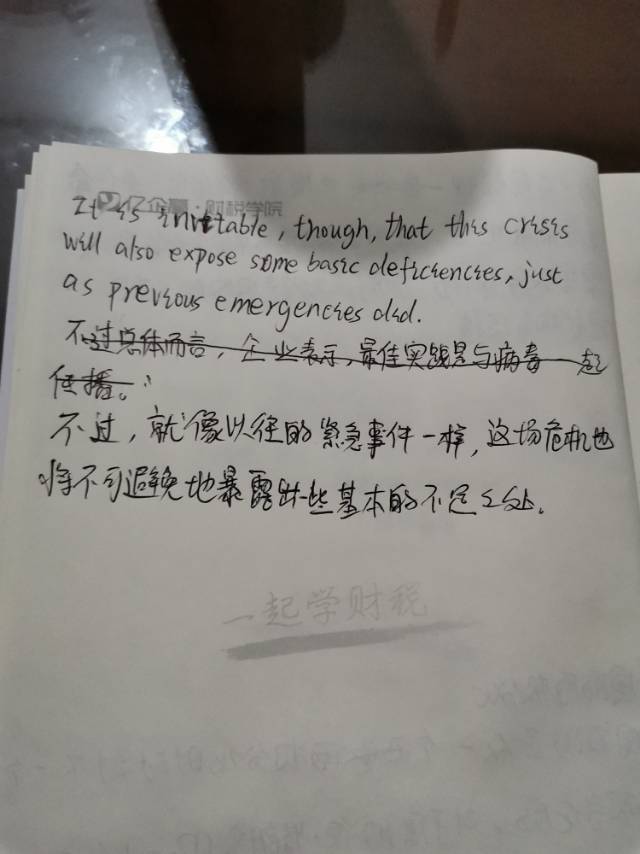 亿企赢·财税学院
It is invetable, though, that this crisis
will also expose some basic deficiencies, just
as previous emergencies did.
不过总体而言，企业表示，最佳实践是与病毒一起
传播。
不过，就像以往的紧急事件一样，这场危机也
将不可避免地暴露出一些基本的不足之处。
一起学财税